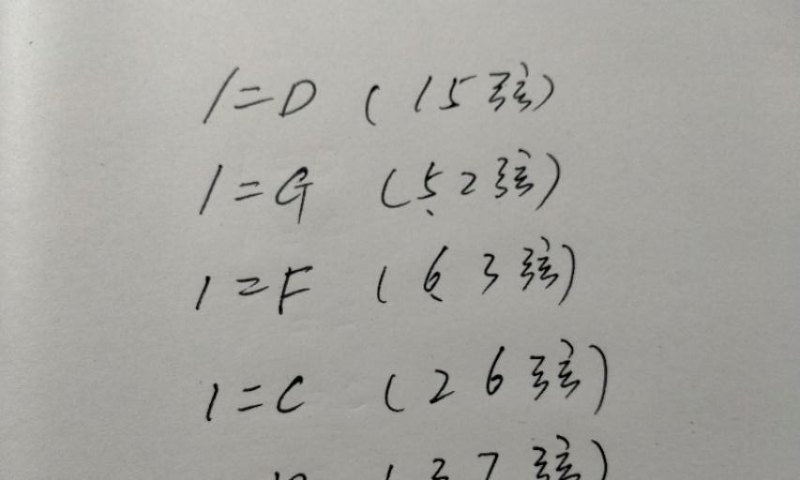 1=D (15弦)
1=G (5̣2弦)
1=F (6̣3弦)
1=C (26弦)
(37弦)